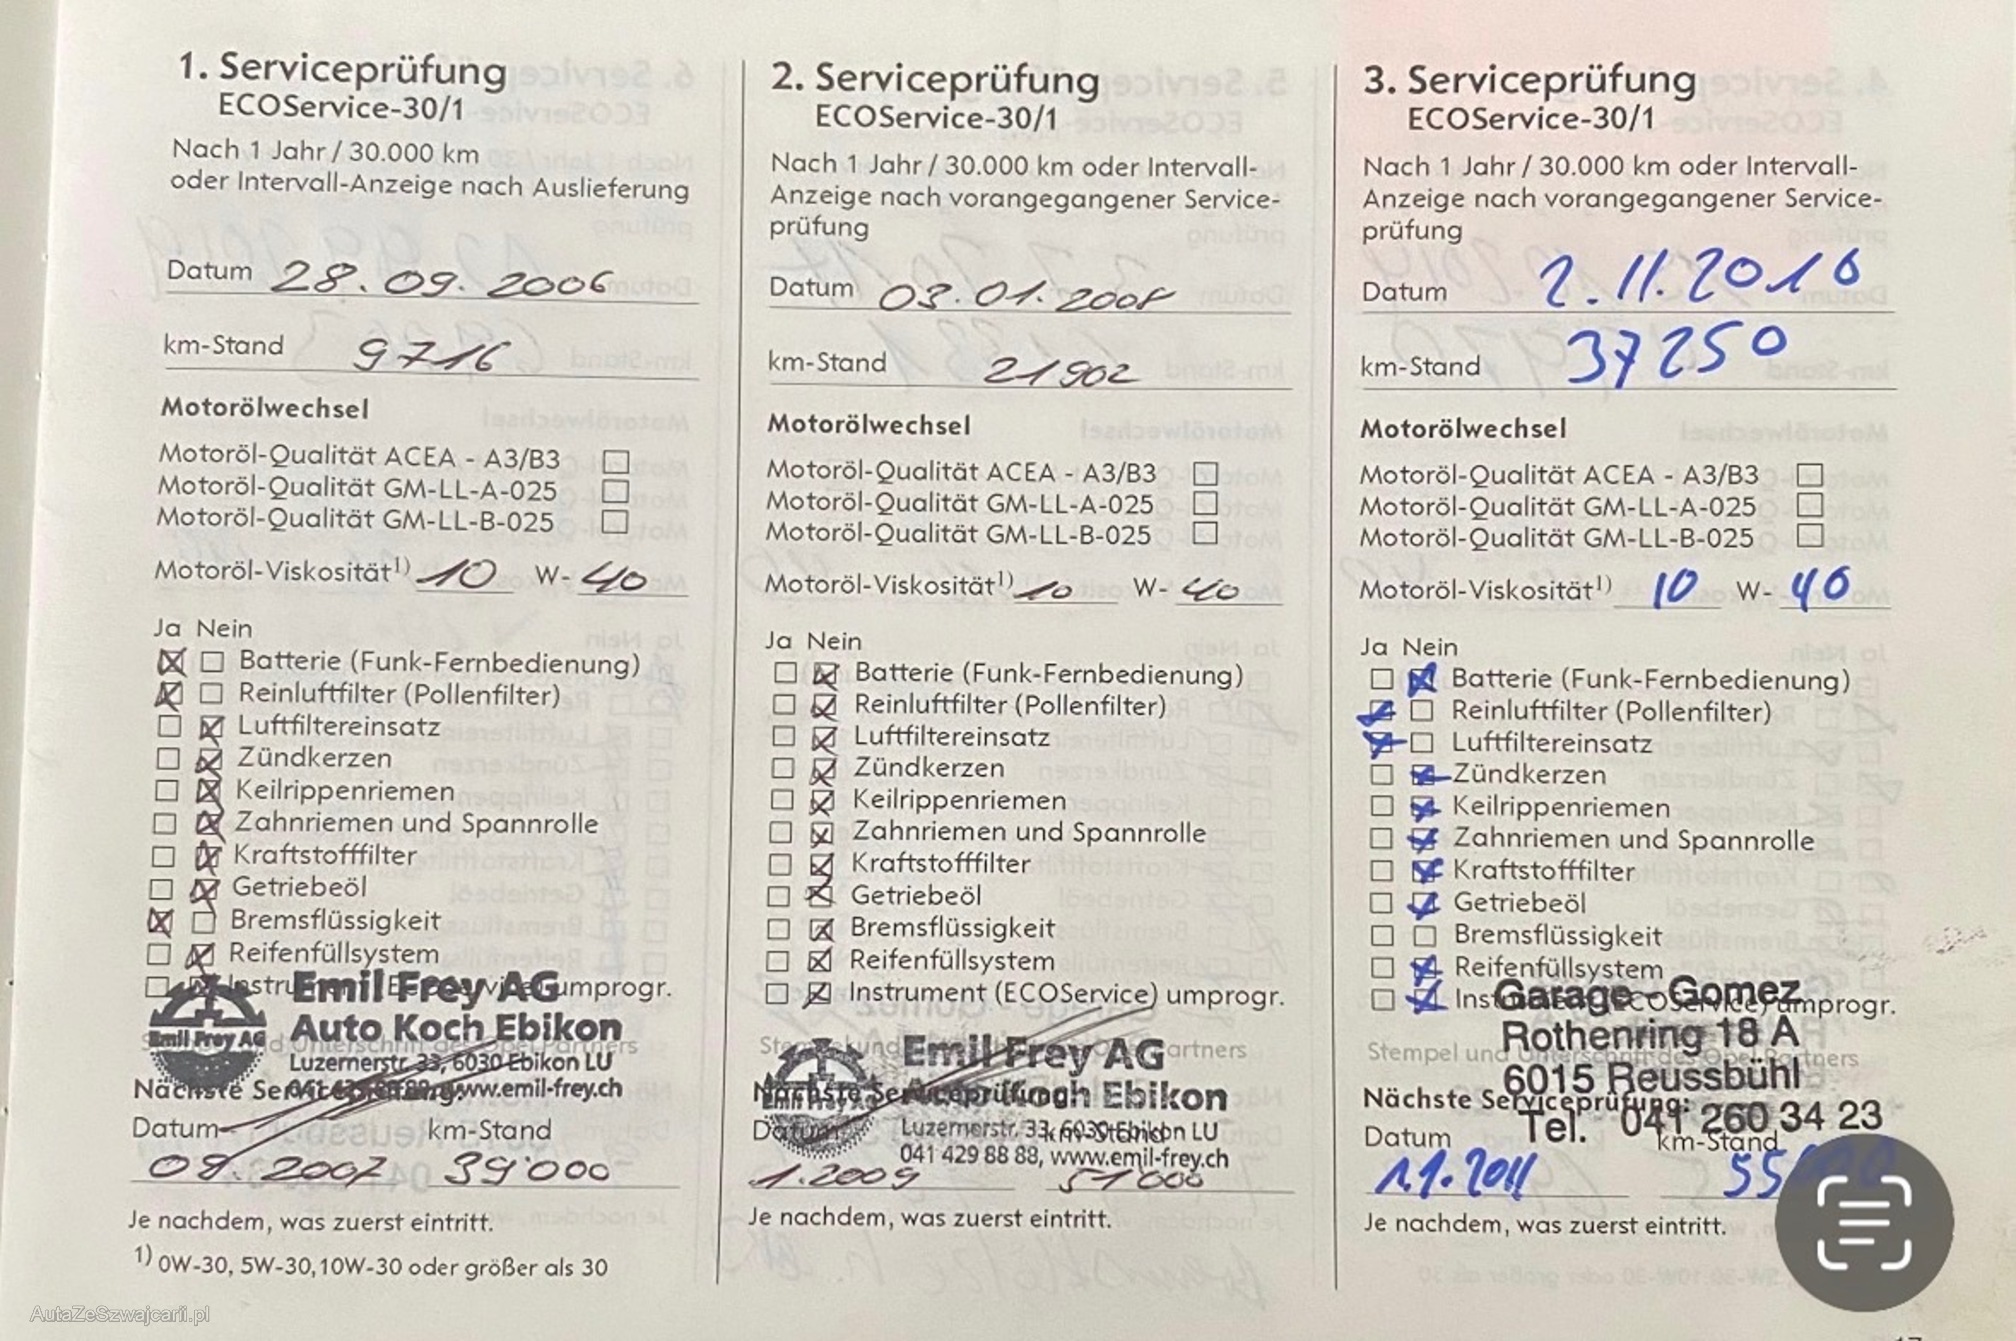 1. Serviceprüfung
ECOService-30/1
Nach 1 Jahr / 30.000 km
oder Intervall-Anzeige nach Auslieferung
Datum 28.09.2006
km-Stand 9716
Motorölwechsel
Motoröl-Qualität ACEA - A3/B3
Motoröl-Qualität GM-LL-A-025
Motoröl-Qualität GM-LL-B-025
Motoröl-Viskosität1) 10 W- 40
Ja Nein
Batterie (Funk-Fernbedienung)
Reinluftfilter (Pollenfilter)
Luftfiltereinsatz
Zündkerzen
Keilrippenriemen
Zahnriemen und Spannrolle
Kraftstofffilter
Getriebeöl
Bremsflüssigkeit
Reifenfüllsystem
umprogr.
Emil Frey AG
Auto Koch Ebikon
Emil Frey AG
Luzernerstr. 33, 6030 Ebikon LU
www.emil-frey.ch
Nächste Serviceprüfung:
Datum km-Stand
09.2007 39'000
Je nachdem, was zuerst eintritt.
1) 0W-30, 5W-30, 10W-30 oder größer als 30
2. Serviceprüfung
ECOService-30/1
Nach 1 Jahr / 30.000 km oder Intervall-
Anzeige nach vorangegangener Service-
prüfung
Datum 03.01.2008
km-Stand 21902
Motorölwechsel
Motoröl-Qualität ACEA - A3/B3
Motoröl-Qualität GM-LL-A-025
Motoröl-Qualität GM-LL-B-025
Motoröl-Viskosität1) 10 W- 40
Ja Nein
Batterie (Funk-Fernbedienung)
Reinluftfilter (Pollenfilter)
Luftfiltereinsatz
Zündkerzen
Keilrippenriemen
Zahnriemen und Spannrolle
Kraftstofffilter
Getriebeöl
Bremsflüssigkeit
Reifenfüllsystem
Instrument (ECOService) umprogr.
Emil Frey AG
Ebikon
Nächste Serviceprüfung
Luzernerstr. 33, 6030 Ebikon LU
Datum km-Stand
041 429 88 88, www.emil-frey.ch
1.2009 51'000
Je nachdem, was zuerst eintritt.
3. Serviceprüfung
ECOService-30/1
Nach 1 Jahr / 30.000 km oder Intervall-
Anzeige nach vorangegangener Service-
prüfung
Datum 2.11.2010
km-Stand 37250
Motorölwechsel
Motoröl-Qualität ACEA - A3/B3
Motoröl-Qualität GM-LL-A-025
Motoröl-Qualität GM-LL-B-025
Motoröl-Viskosität1) 10 W- 40
Ja Nein
Batterie (Funk-Fernbedienung)
Reinluftfilter (Pollenfilter)
Luftfiltereinsatz
Zündkerzen
Keilrippenriemen
Zahnriemen und Spannrolle
Kraftstofffilter
Getriebeöl
Bremsflüssigkeit
Reifenfüllsystem
Instrument (ECOService) umprogr.
Garage - Gomez
Rothenring 18 A
Stempel und Unterschrift des Opel Partners
6015 Reussbühl
Nächste Serviceprüfung:
Tel. 041 260 34 23
Datum km-Stand
1.1.2011
Je nachdem, was zuerst eintritt.
AutaZeSzwajcarii.pl